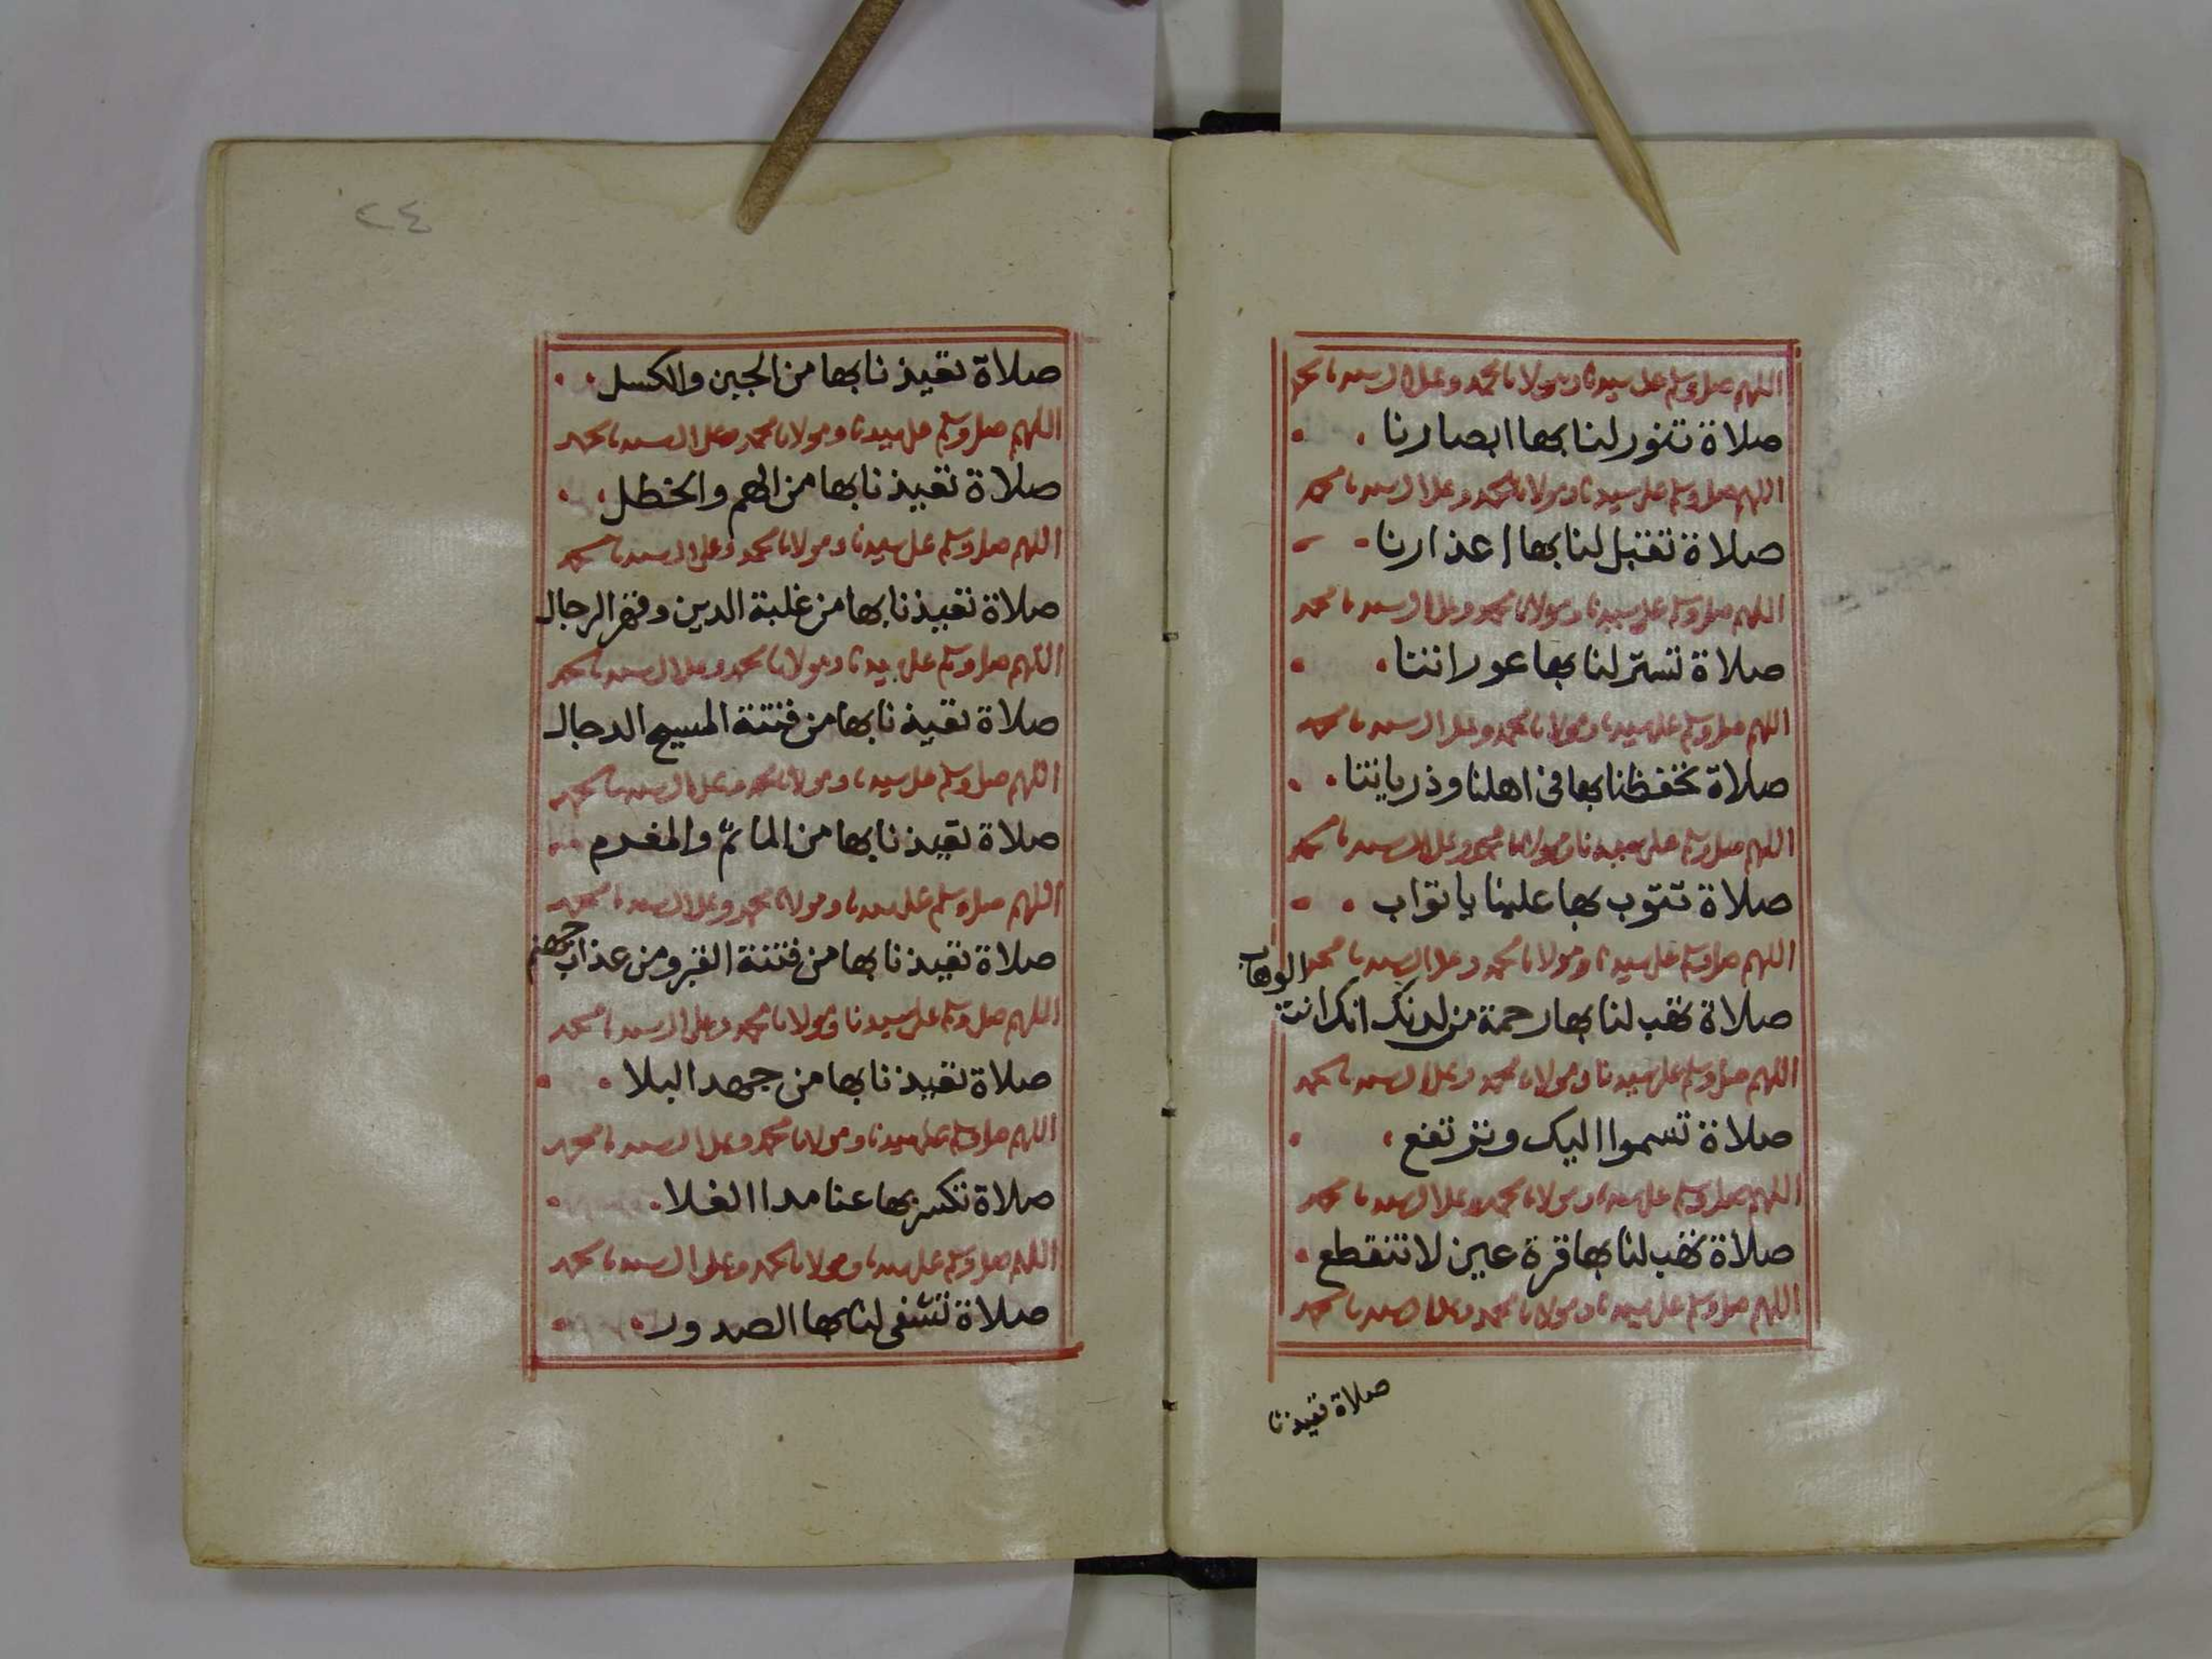 اللهم صل وسلم على سيدنا ومولانا محمد وعلى ال سيدنا محمد
صلاة تنور لنا بها ابصارنا
اللهم صل وسلم على سيدنا ومولانا محمد وعلى ال سيدنا محمد
صلاة تقبل لنا بها اعذارنا
اللهم صل وسلم على سيدنا ومولانا محمد وعلى ال سيدنا محمد
صلاة تستر لنا بها عوراتنا
اللهم صل وسلم على سيدنا ومولانا محمد وعلى ال سيدنا محمد
صلاة تحفظنا بها فى اهلنا وذرياتنا
اللهم صل وسلم على سيدنا ومولانا محمد وعلى ال سيدنا محمد
صلاة تتوب بها علينا يا تواب
اللهم صل وسلم على سيدنا ومولانا محمد وعلى ال سيدنا محمد
صلاة تهب لنا بها رحمة من لدنك انك انت الوهاب
اللهم صل وسلم على سيدنا ومولانا محمد وعلى ال سيدنا محمد
صلاة تسموا اليك وترتفع
اللهم صل وسلم على سيدنا ومولانا محمد وعلى ال سيدنا محمد
صلاة تهب لنا بها قرة عين لا تنقطع
اللهم صل وسلم على سيدنا ومولانا محمد وعلى ال سيدنا محمد
صلاة تعيذنا
٢٤
صلاة تعيذنا بها من الجبن والكسل
اللهم صل وسلم على سيدنا ومولانا محمد وعلى ال سيدنا محمد
صلاة تعيذنا بها من الهم والخطل
اللهم صل وسلم على سيدنا ومولانا محمد وعلى ال سيدنا محمد
صلاة تعيذنا بها من غلبة الدين وقهر الرجال
اللهم صل وسلم على سيدنا ومولانا محمد وعلى ال سيدنا محمد
صلاة تعيذنا بها من فتنة المسيح الدجال
اللهم صل وسلم على سيدنا ومولانا محمد وعلى ال سيدنا محمد
صلاة تعيذنا بها من الماثم والمغرم
اللهم صل وسلم على سيدنا ومولانا محمد وعلى ال سيدنا محمد
صلاة تعيذنا بها من فتنة القبر ومن عذاب جهنم
اللهم صل وسلم على سيدنا ومولانا محمد وعلى ال سيدنا محمد
صلاة تعيذنا بها من جهد البلا
اللهم صل وسلم على سيدنا ومولانا محمد وعلى ال سيدنا محمد
صلاة تكسر بها عنا مدا الغلا
اللهم صل وسلم على سيدنا ومولانا محمد وعلى ال سيدنا محمد
صلاة تشفى لنا بها الصدور